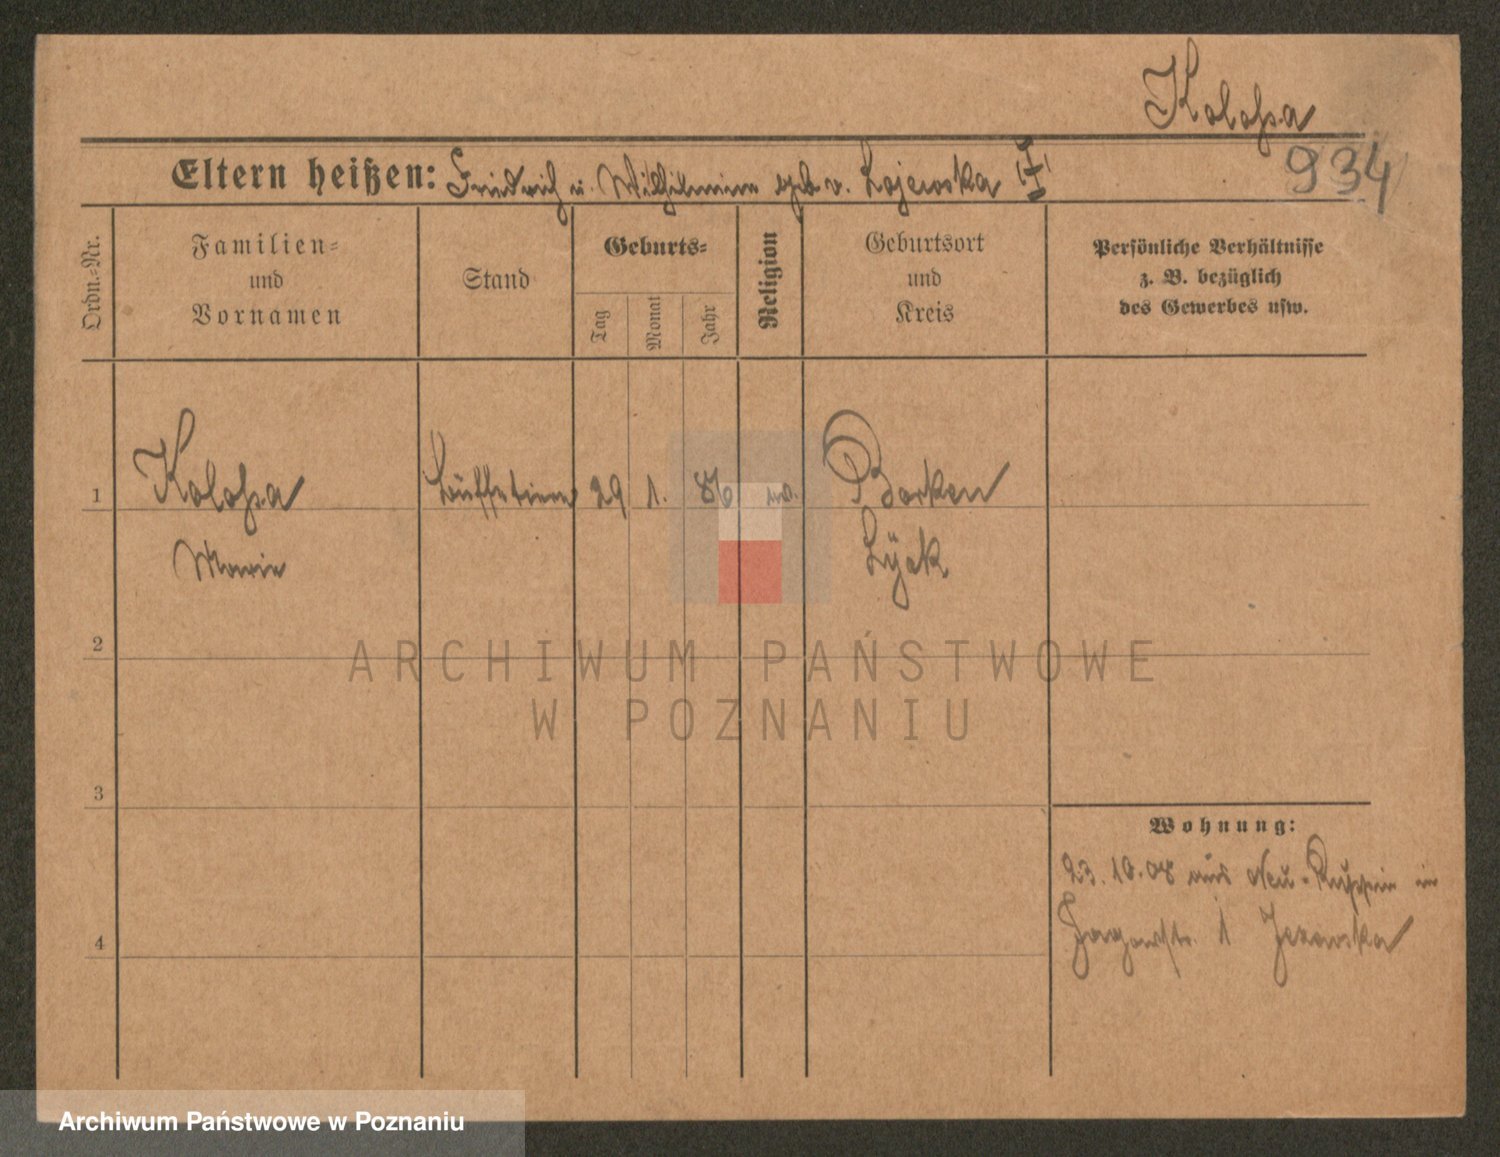 Kolossa
934
Eltern heißen: Friedrich u. Wilhelmine geb. v. Lojewska
Ordn.=Nr.
Familien=
und
Vornamen
Stand
Geburts=
Tag
Monat
Jahr
Religion
Geburtsort
und
Kreis
Persönliche Verhältnisse
z. B. bezüglich
des Gewerbes usw.
1 Kolossa Büffetiere 29 1. 86 ev. Borken
Marie Lyck
2
ARCHIWUM PAŃSTWOWE
W POZNANIU
3
Wohnung:
23.10.08 aus Neu-Ruppin in
4 1
Archiwum Państwowe w Poznaniu